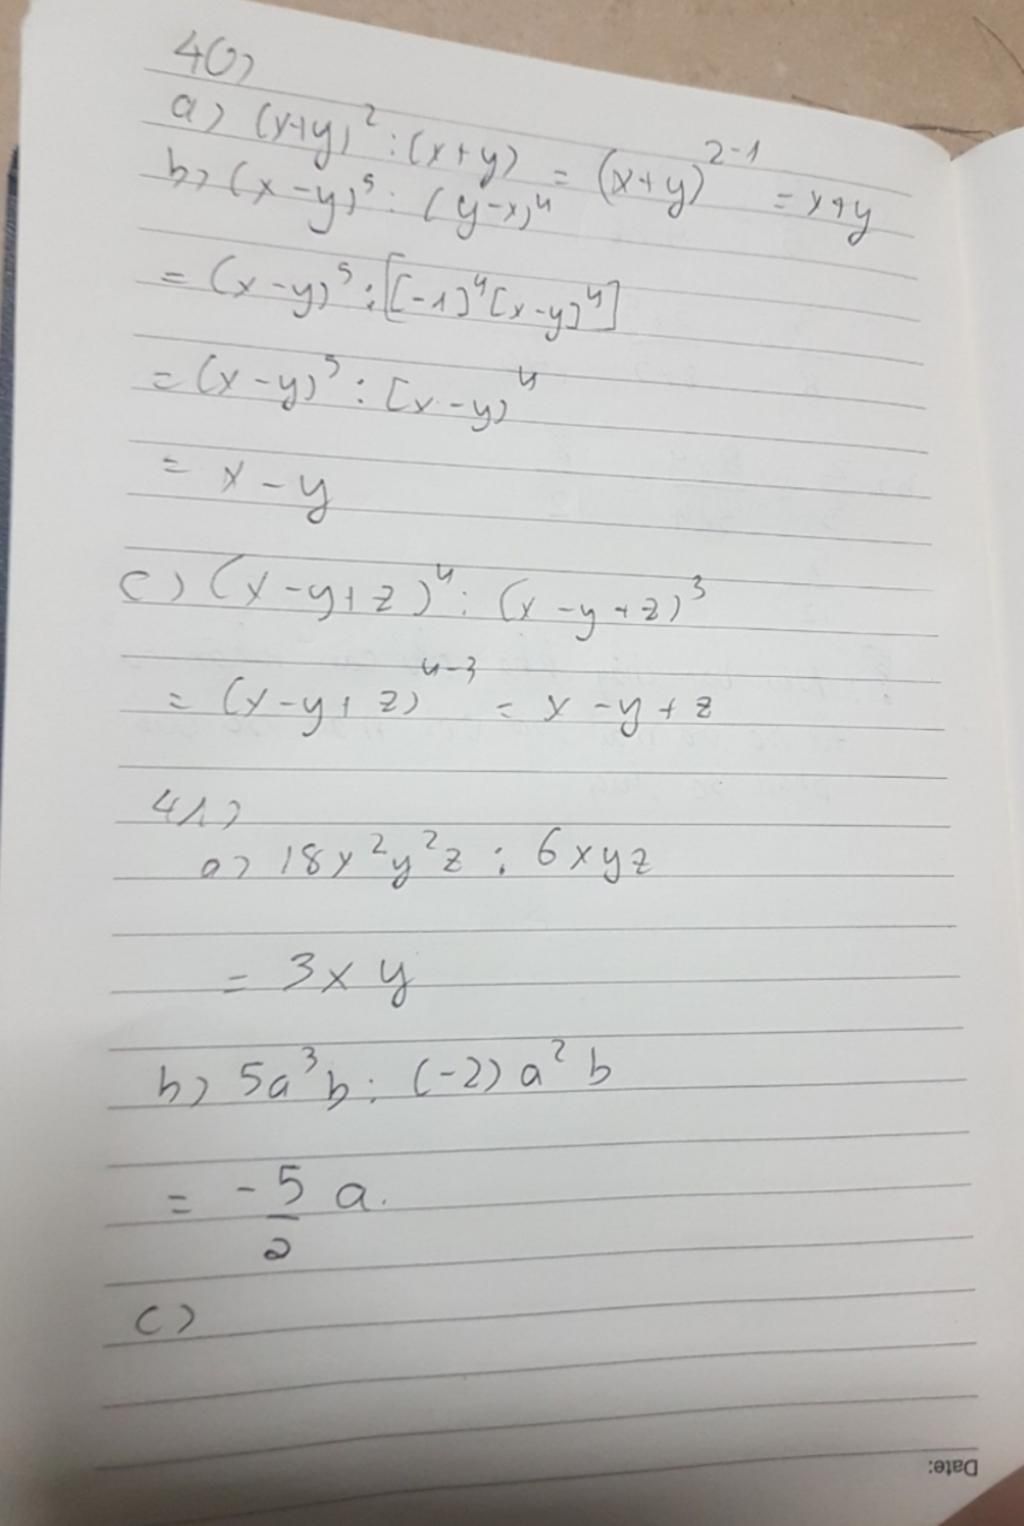 40)
a) (x+y)² : (x+y) = (x+y)²⁻¹ = x+y
b) (x-y)⁵ : (y-x)⁴
= (x-y)⁵ : [[-1]⁴[x-y]⁴]
= (x-y)⁵ : [x-y)⁴
= x-y
c) (x-y+z)⁴ : (x-y+z)³
= (x-y+z)⁴⁻³ = x-y+z
41)
a) 18x²y²z : 6xyz
= 3xy
b) 5a³b : (-2)a²b
= -5/2 a.
c)
Date: